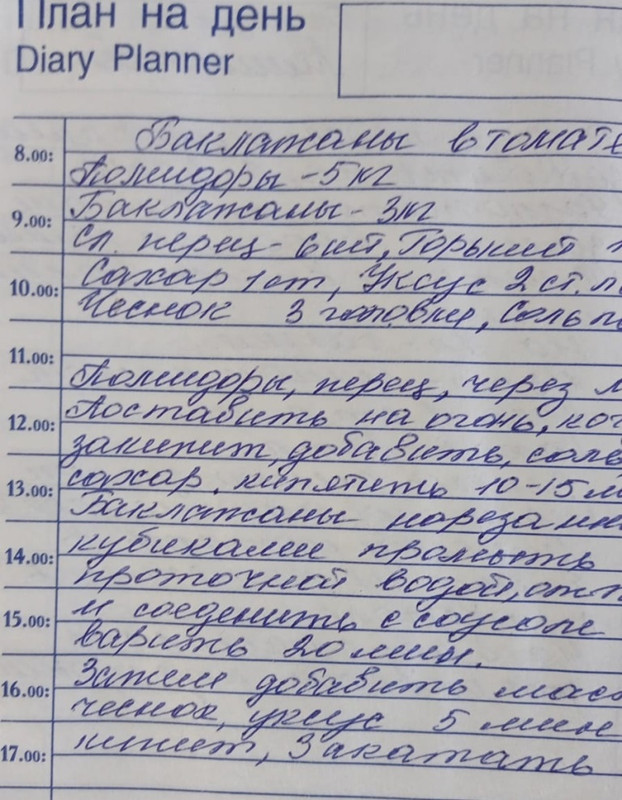 План на день
Diary Planner
8.00: Баклажаны в томате
Помидоры - 5 кг
9.00: Баклажаны - 3 кг
Сл. перец - 6 шт, Горький п
10.00: Сахар 1 ст, Уксус 2 ст. л
Чеснок 3 головки, Соль по
11.00:
Помидоры, перец, через м
12.00: Поставить на огонь, ког
закипит, добавить, соль
13.00: сахар. кипятить 10-15 м
Баклажаны нарезанн
14.00: кубиками промыть
проточной водой, отж
15.00: и соеденить с соусом
варить 20 мин.
16.00: Затем добавить мас
чеснок, уксус 5 мин
17.00: кипит, Закатать